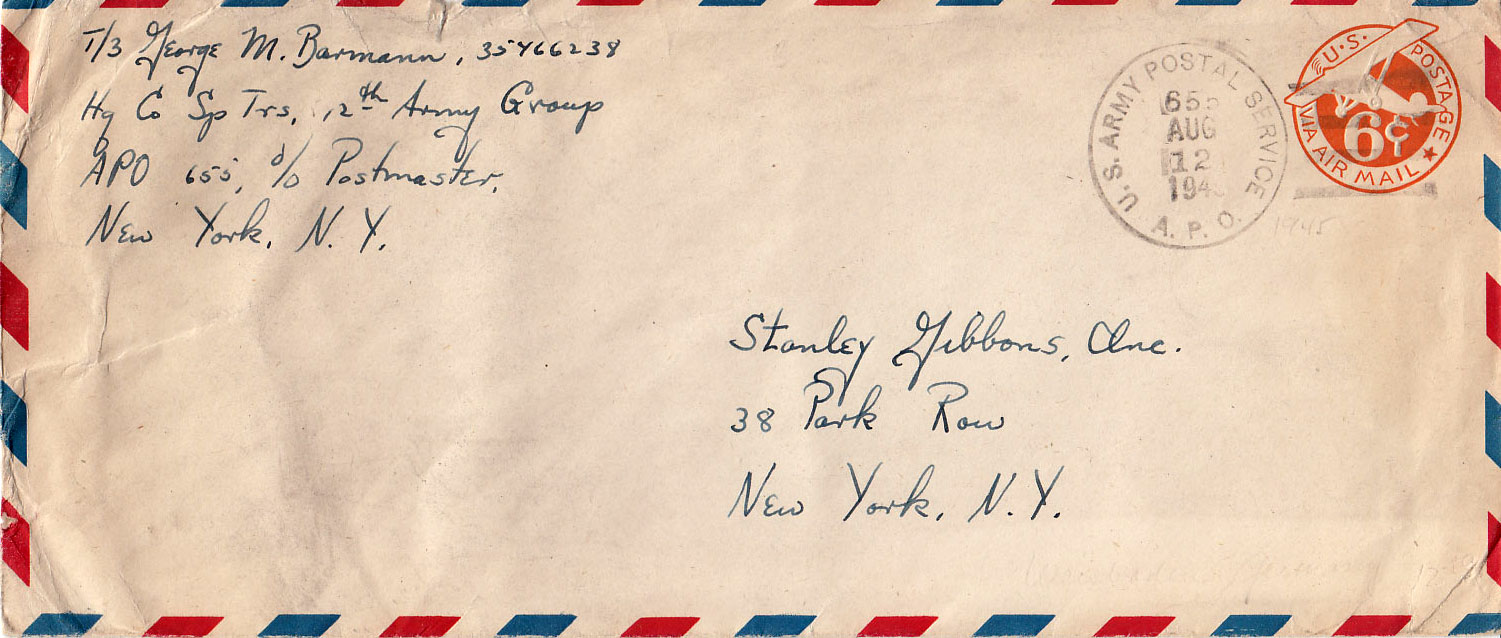 T/3 George M. Barmann, 35466238
Hq Co Sp Trs, 12th Army Group
APO 655, c/o Postmaster,
New York, N. Y.
U.S. ARMY POSTAL SERVICE
655
AUG
12
194
A. P. O.
U.S. POSTAGE
6¢
VIA AIR MAIL
1945
Stanley Gibbons, Inc.
38 Park Row
New York, N. Y.